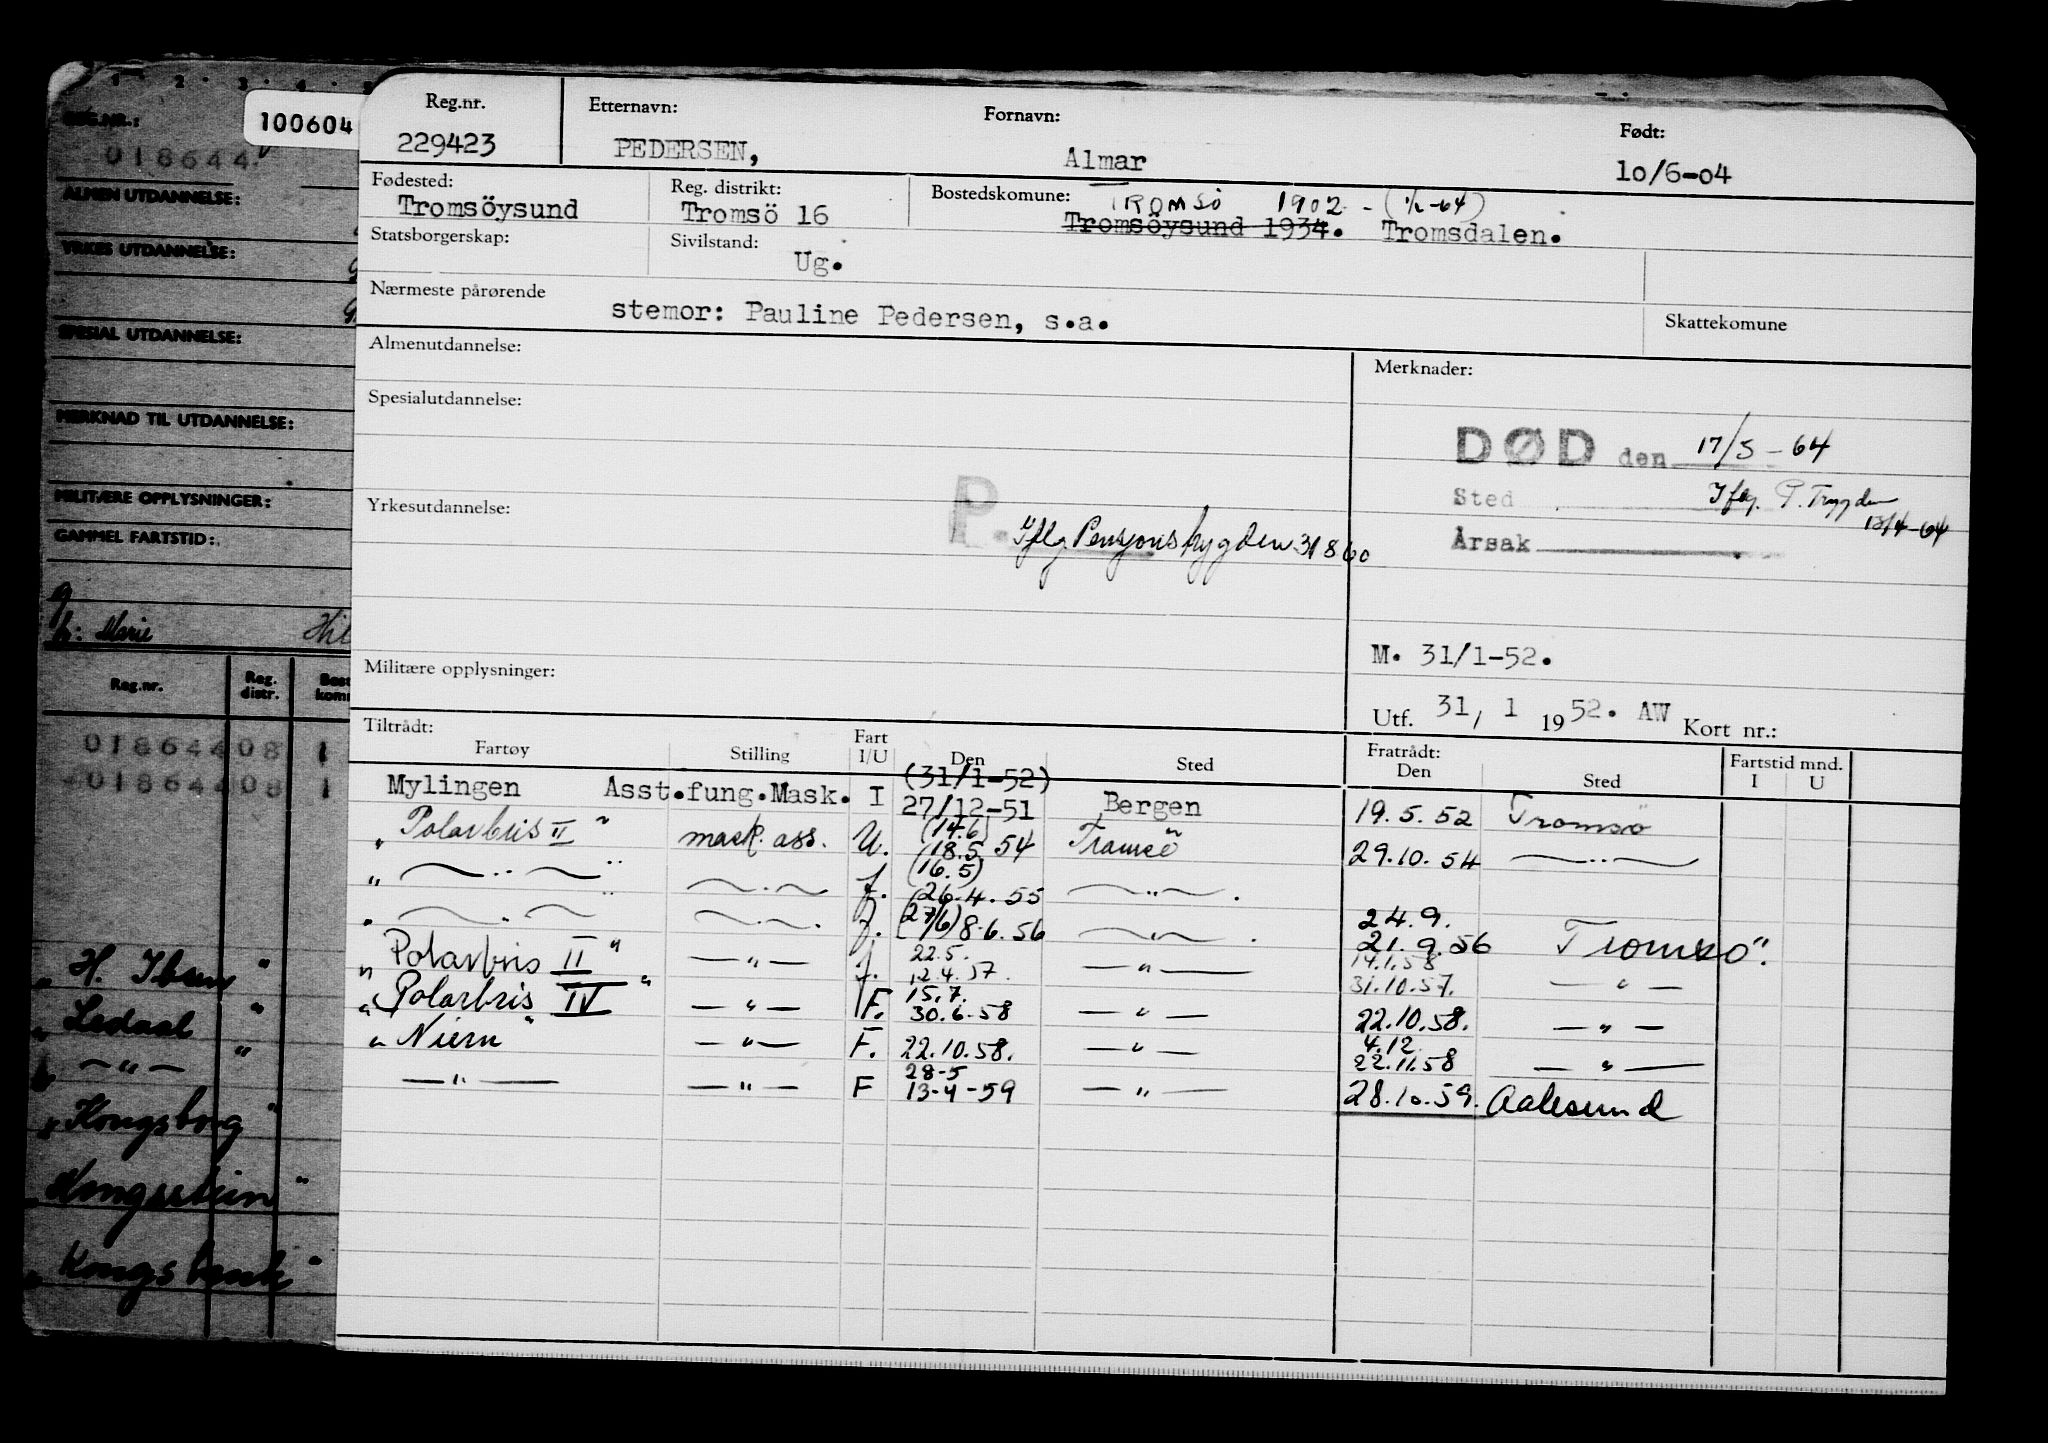 1 2 3 4 5
REG.NR.:
100604
018644
ALMEN UTDANNELSE:
YRKES UTDANNELSE:
SPESIAL UTDANNELSE:
MERKNAD TIL UTDANNELSE:
MILITÆRE OPPLYSNINGER:
GAMMEL FARTSTID:
h: Marie Hil
Reg.nr. Reg. distr. Best komm
018644 08 1
018644 08 1
" H. Ibsen "
" Ledaal "
" — " — "
" Kongsborg "
" Kongsstein "
" Kongsbank "
Reg.nr. Etternavn: Fornavn: Født:
229423 PEDERSEN, Almar 10/6-04
Fødested: Reg. distrikt: Bostedskomune: TROMSÖ 1902 - (1/2-64)
Tromsöysund Tromsö 16 Tromsöysund 1934. Tromsdalen.
Statsborgerskap: Sivilstand:
Ug.
Nærmeste pårørende
stemor: Pauline Pedersen, s.a. Skattekomune
Almenutdannelse: Merknader:
Spesialutdannelse:
DØD den 17/3-64
Sted Iflg. P. Trygden
13/4-64
Yrkesutdannelse: P. Iflg Pensjonstrygden 31 8 60
Årsak
M. 31/1-52.
Militære opplysninger:
Utf. 31, 1 1952. AW Kort nr.:
Tiltrådt: Fratrådt: Fartstid mnd.
Fartøy Stilling Fart I/U Den Sted Den Sted I U
(31/1-52)
Mylingen Asst.fung.Mask. I 27/12-51 Bergen 19.5.52 Tromsö
(14.6)
" Polarbris II " mask. ass. U. (18.5.54 Tromsö 29.10.54 — " —
(16.5)
" — " — " — " — f. (26.4.55 — " —
24.9.
" — " — " — " — f. (27/6) 8.6.56 — " — 21.9.56 Tromsö.
22.5. 14.1.58
" Polarbris II " — " — f. 12.4.57. — " — 31.10.57. — " —
15.7.
" Polarbris IV " — " — F. 30.6.58 — " — 22.10.58. — " —
4.12.
" Niern " — " — F. 22.10.58. — " — 22.11.58 — " —
28-5
— " — — " — F 13-4-59 — " — 28.10.59. Aalesund